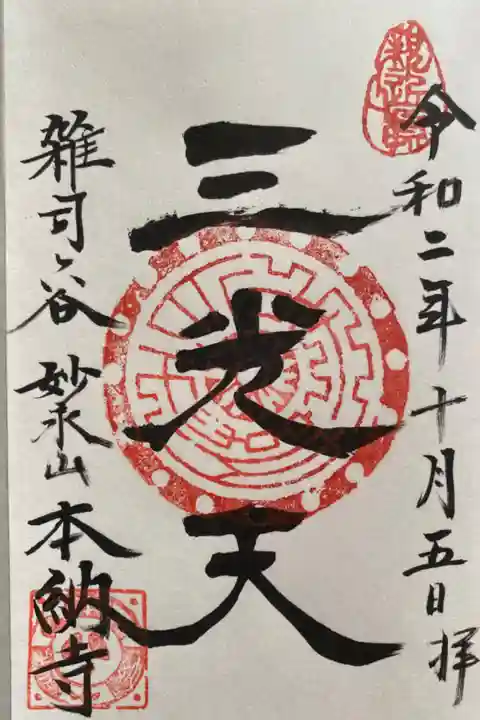 令和二年十月五日拝
三光天
雑司ヶ谷 妙永山本納寺